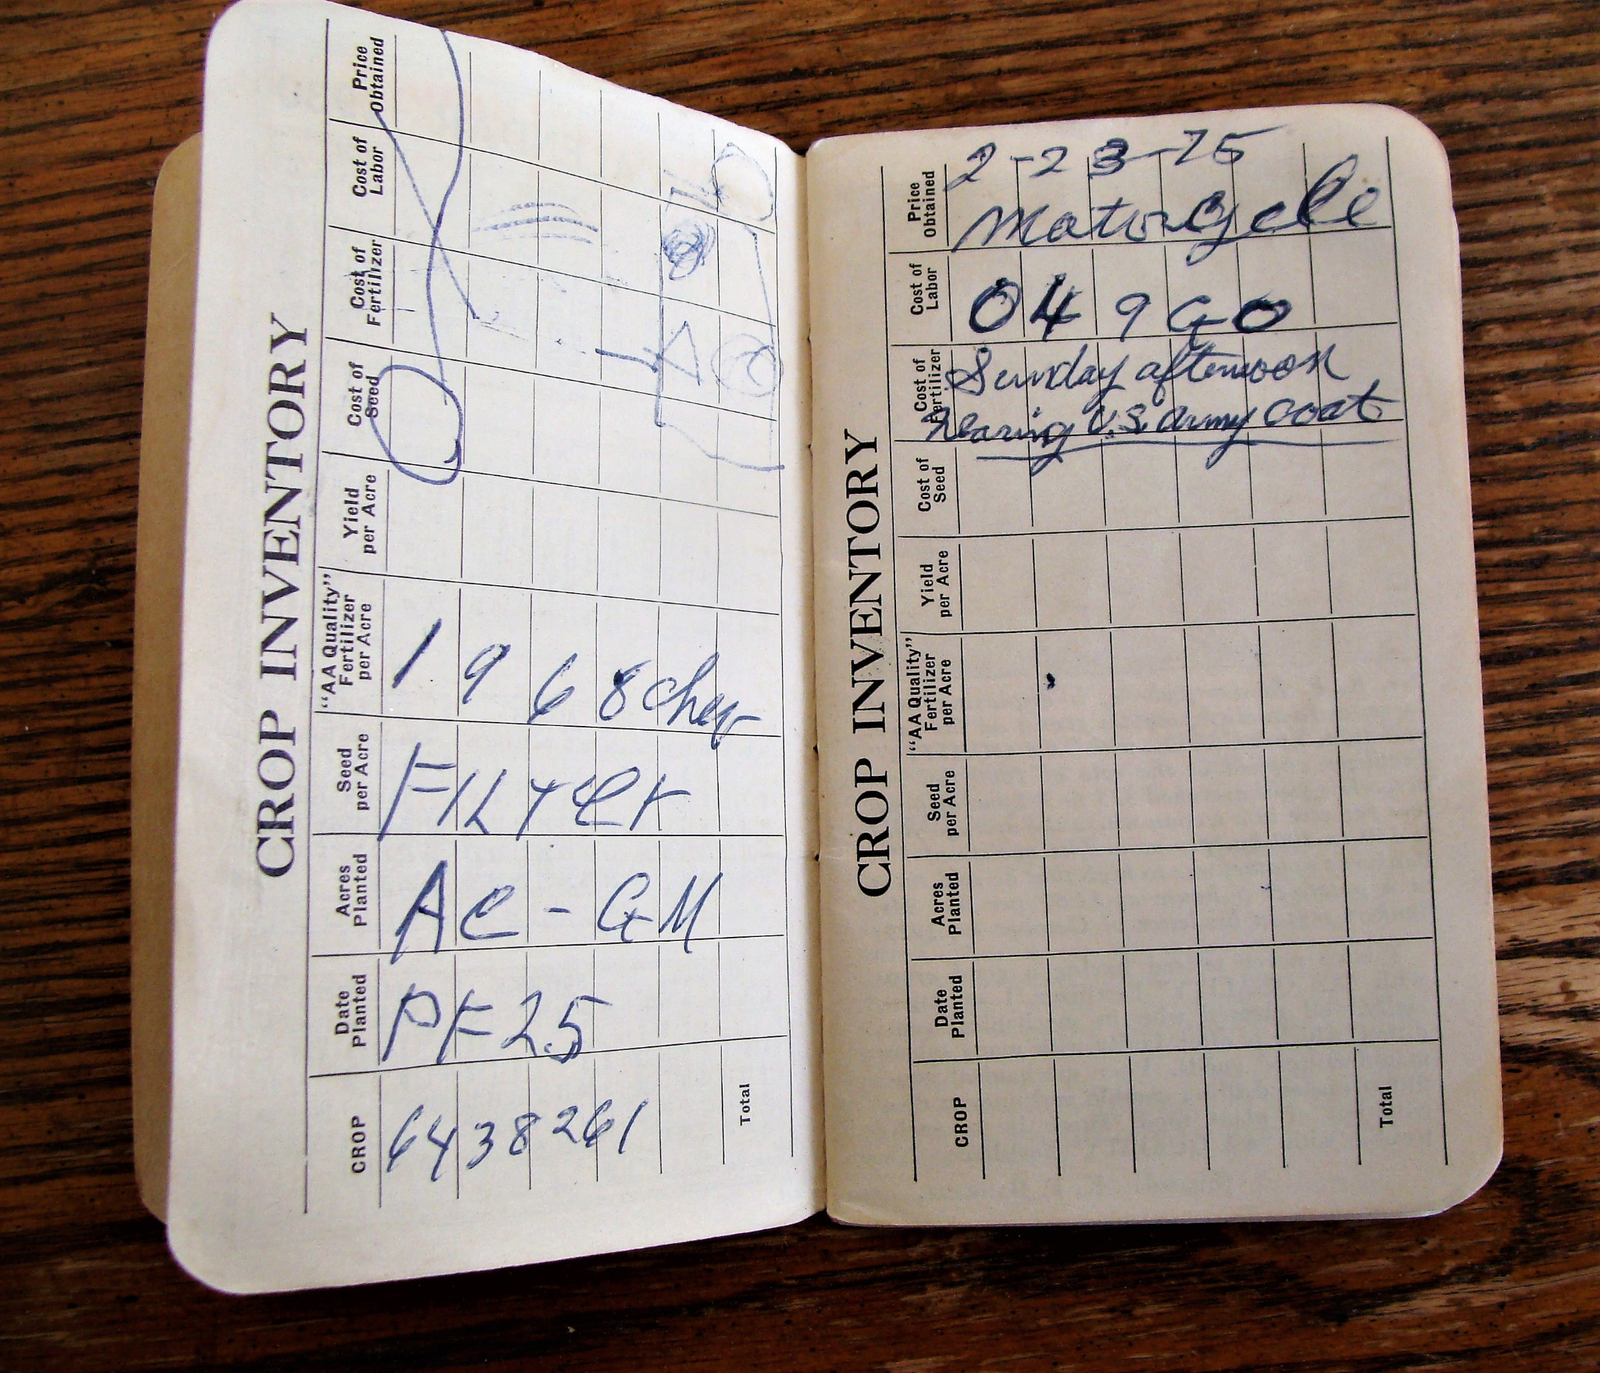 CROP INVENTORY
Price Obtained
Cost of Labor
Cost of Fertilizer
Cost of Seed
Yield per Acre
"AA Quality" Fertilizer per Acre
Seed per Acre
Acres Planted
Date Planted
CROP
Total
1968 chev
Filter
AC-GM
PF25
6438261
CROP INVENTORY
Price Obtained
Cost of Labor
Cost of Fertilizer
Cost of Seed
Yield per Acre
"AA Quality" Fertilizer per Acre
Seed per Acre
Acres Planted
Date Planted
CROP
Total
2-23-75
Motorcycle
049GO
Sunday afternoon
U.S. army coat